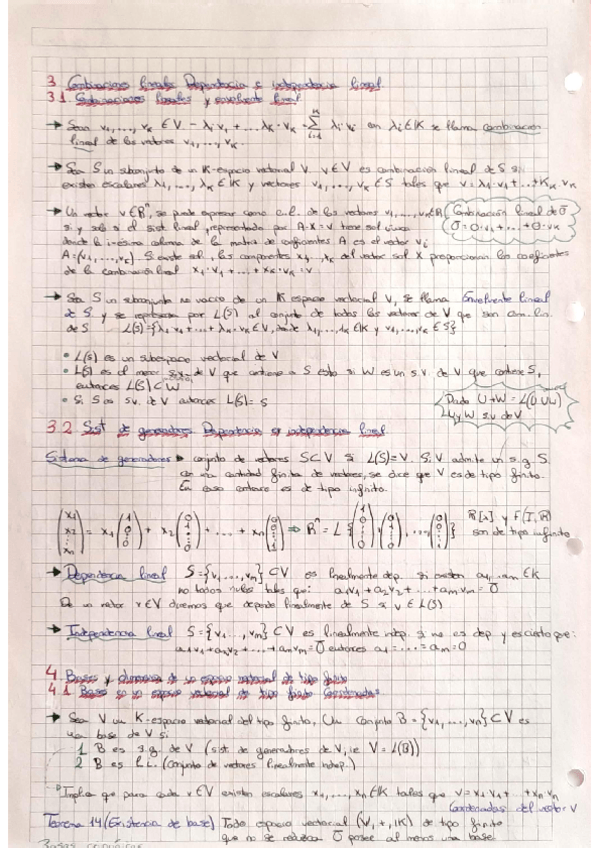 3 Combinaciones lineales Dependencia e independencia lineal
3.1 Combinaciones lineales y envolvente lineal
→ Sean v₁,...,vₖ ∈ V - λ₁·v₁ + ... λₖ·vₖ = Σ λᵢ·vᵢ con λᵢ ∈ K se llama combinación
lineal de los vectores v₁,...,vₖ.
→ Sea S un subconjunto de un K-espacio vectorial V. v∈V es combinación lineal de S si
existen escalares λ₁,...,λₖ ∈ K y vectores v₁,...,vₖ ∈ S tales que v = λ₁·v₁ + ... + Kₖ vₖ
→ Un vector v∈ℝⁿ, se puede expresar como c.l. de los vectores v₁,...,vₖ∈ℝ
si y solo si el sist lineal, representado por A·X = v tiene sol
donde la i-ésima columna de la matriz de coeficientes A es el vector vᵢ
A=(v₁,...,vₖ). Si existe sol, las componentes x₁...xₖ del vector sol X proporcionan los coeficientes
de la combinación lineal x₁·v₁ + ... + xₖ·vₖ = v
Combinación lineal de 0̄
0̄ = 0·v₁ + ... + 0·vₖ
→ Sea S un subconjunto no vacío de un K espacio vectorial V, se llama Envolvente lineal
de S y se representa por L(S) al conjunto de todos los vectores de V que son com. lin.
de S L(S) = {λ₁·v₁ + ... + λₖ·vₖ ∈ V, donde λ₁,...,λₖ ∈ K y v₁,...,vₖ ∈ S}
• L(S) es un subespacio vectorial de V
• L(S) es el menor s.v. de V que contiene a S esto si W es un s.v. de V que contiene S,
entonces L(S) ⊂ W
• Si S es s.v. de V entonces L(S) = S
Dado U+W = L(U∪W)
U y W s.v. de V
3.2 Sist de generadores Dependencia e independencia lineal
Sistema de generadores → conjunto de vectores S⊂V si L(S)=V. Si V admite un s.g. S
con una cantidad finita de vectores, se dice que V es de tipo finito.
En caso contrario es de tipo infinito.
(x₁ x₂ ⋮ xₙ) = x₁ (1 0 ⋮ 0) + x₂ (0 1 ⋮ 0) + ... + xₙ (0 0 ⋮ 1) ⇒ ℝⁿ = L {(1 0 ⋮ 0), (0 1 ⋮ 0), ..., (0 0 ⋮ 1)} ℝ[x] y F(I,ℝ)
son de tipo infinito
→ Dependencia lineal S = {v₁,...,vₘ} ⊂ V es linealmente dep. si existen a₁...aₘ ∈ K
no todos nulos tales que: a₁v₁ + a₂v₂ + ... + aₘvₘ = 0̄
De un vector v∈V diremos que depende linealmente de S si v ∈ L(S)
→ Independencia lineal S = {v₁...,vₘ} ⊂ V es linealmente indep. si no es dep. y es cierto que:
a₁v₁ + a₂v₂ + ... + aₘvₘ = 0̄ entonces a₁ = ... = aₘ = 0
4 Bases y dimensión de un espacio vectorial de tipo finito
4.1 Bases en un espacio vectorial de tipo finito Coordenadas
→ Sea V un K-espacio vectorial del tipo finito. Un conjunto B = {v₁,...,vₙ} ⊂ V es
una base de V si:
1 B es s.g. de V (sist. de generadores de V, ie V = L(B))
2 B es l.i. (conjunto de vectores linealmente indep.)
Implica que para cada v∈V existen escalares x₁,...,xₙ ∈ K tales que v = x₁·v₁ + + xₙ·vₙ
Coordenadas del vector v
Teorema 14 (Existencia de base) Todo espacio vectorial (V, +, K) de tipo finito
que no se reduzca 0̄ posee al menos una base.
Bases